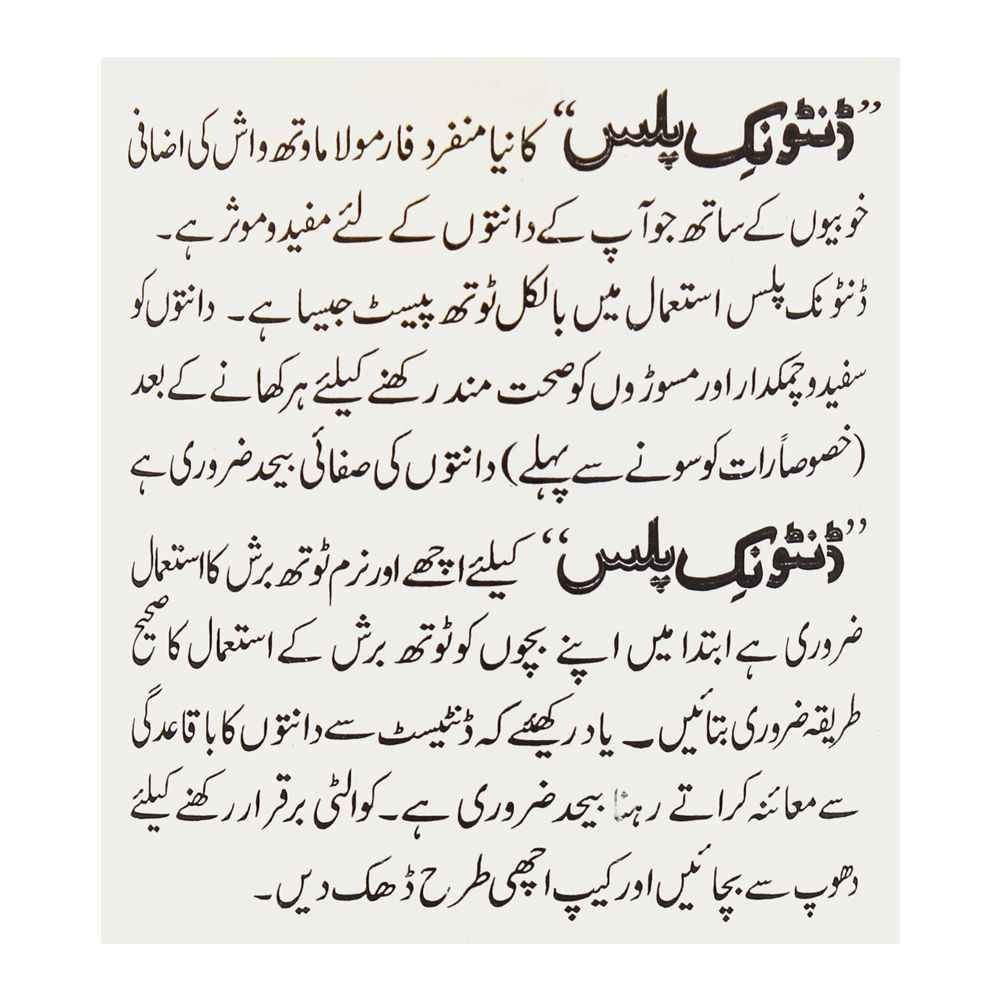 ”ڈنٹونک پلس“ کا نیا منفرد فارمولا ماوتھ واش کی اضافی
خوبیوں کے ساتھ جو آپ کے دانتوں کے لئے مفید و موثر ہے۔
ڈنٹونک پلس استعمال میں بالکل ٹوتھ پیسٹ جیسا ہے۔ دانتوں کو
سفید و چمکدار اور مسوڑوں کو صحت مند رکھنے کیلئے ہر کھانے کے بعد
(خصوصاً رات کو سونے سے پہلے) دانتوں کی صفائی بیحد ضروری ہے
”ڈنٹونک پلس“ کیلئے اچھے اور نرم ٹوتھ برش کا استعمال
ضروری ہے ابتدا میں اپنے بچوں کو ٹوتھ برش کے استعمال کا صحیح
طریقہ ضروری بتائیں۔ یاد رکھیئے کہ ڈنٹیسٹ سے دانتوں کا باقاعدگی
سے معائنہ کراتے رہنا بیحد ضروری ہے۔ کوالٹی برقرار رکھنے کیلئے
دھوپ سے بچائیں اور کیپ اچھی طرح ڈھک دیں۔